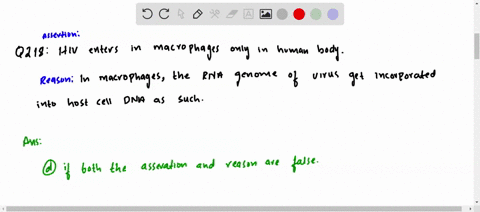 assertion:
Q218: HIV enters in macrophages only in human body.
Reason: In macrophages, the RNA genome of virus get incorporated
into host cell DNA as such.
Ans:
(d) if both the asseration and reason are false.